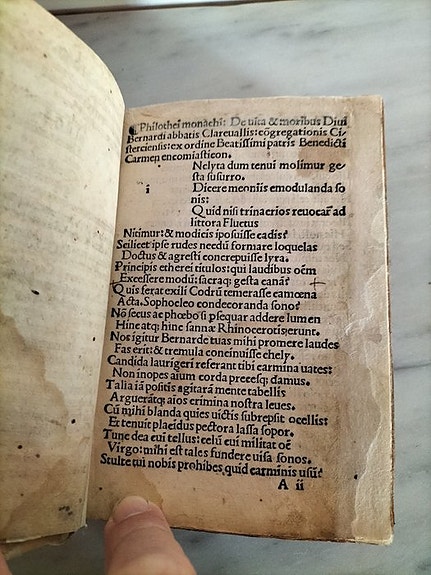 ¶ Philothei monachi: De uita & moribus Diui
Bernardi abbatis Clareuallis: cōgregationis Ci-
sterciensis: ex ordine Beatissimi patris Benedicti
Carmen encomiasticon.
Nclyta dum tenui molimur ge-
sta susurro.
i Dicere meoniis emodulanda so
nis:
Quid nisi trinacrios reuocar̄ ad
littora Fluctus
Nitimur: & modicis īposuisse cadis?
Scilicet ipse rudes nedū formare loquelas
Doctus & agresti concrepuisse lyra.
Principis etherei titulos: qui laudibus oēm
Excessere modū: sacraq; gesta canā?
Quis ferat exili Codrū temerasse camœna
Acta. Sophocleo condecoranda sono?
Nō secus ac phœbo si psequar addere lumen
Hinc atq; hinc sannæ Rhinocerotis erunt.
Nos igitur Bernarde tuas mihi promere laudes
Fas erit: & tremula concinuisse chely.
Candida laurigeri referant tibi carmina uates:
Non inopes aium corda precesq; damus.
Talia iā positis agitarā mente tabellis
Arguerātq; aīos crimina nostra leues.
Cū mihi blanda quies uictis subrepsit ocellis:
Et tenuit placidus pectora lassa sopor.
Tunc dea cui tellus: celū cui militat oē
Virgo: mihi est tales fundere uisa sonos.
Stulte tui nobis prohibes quid carminis usū?
A ii